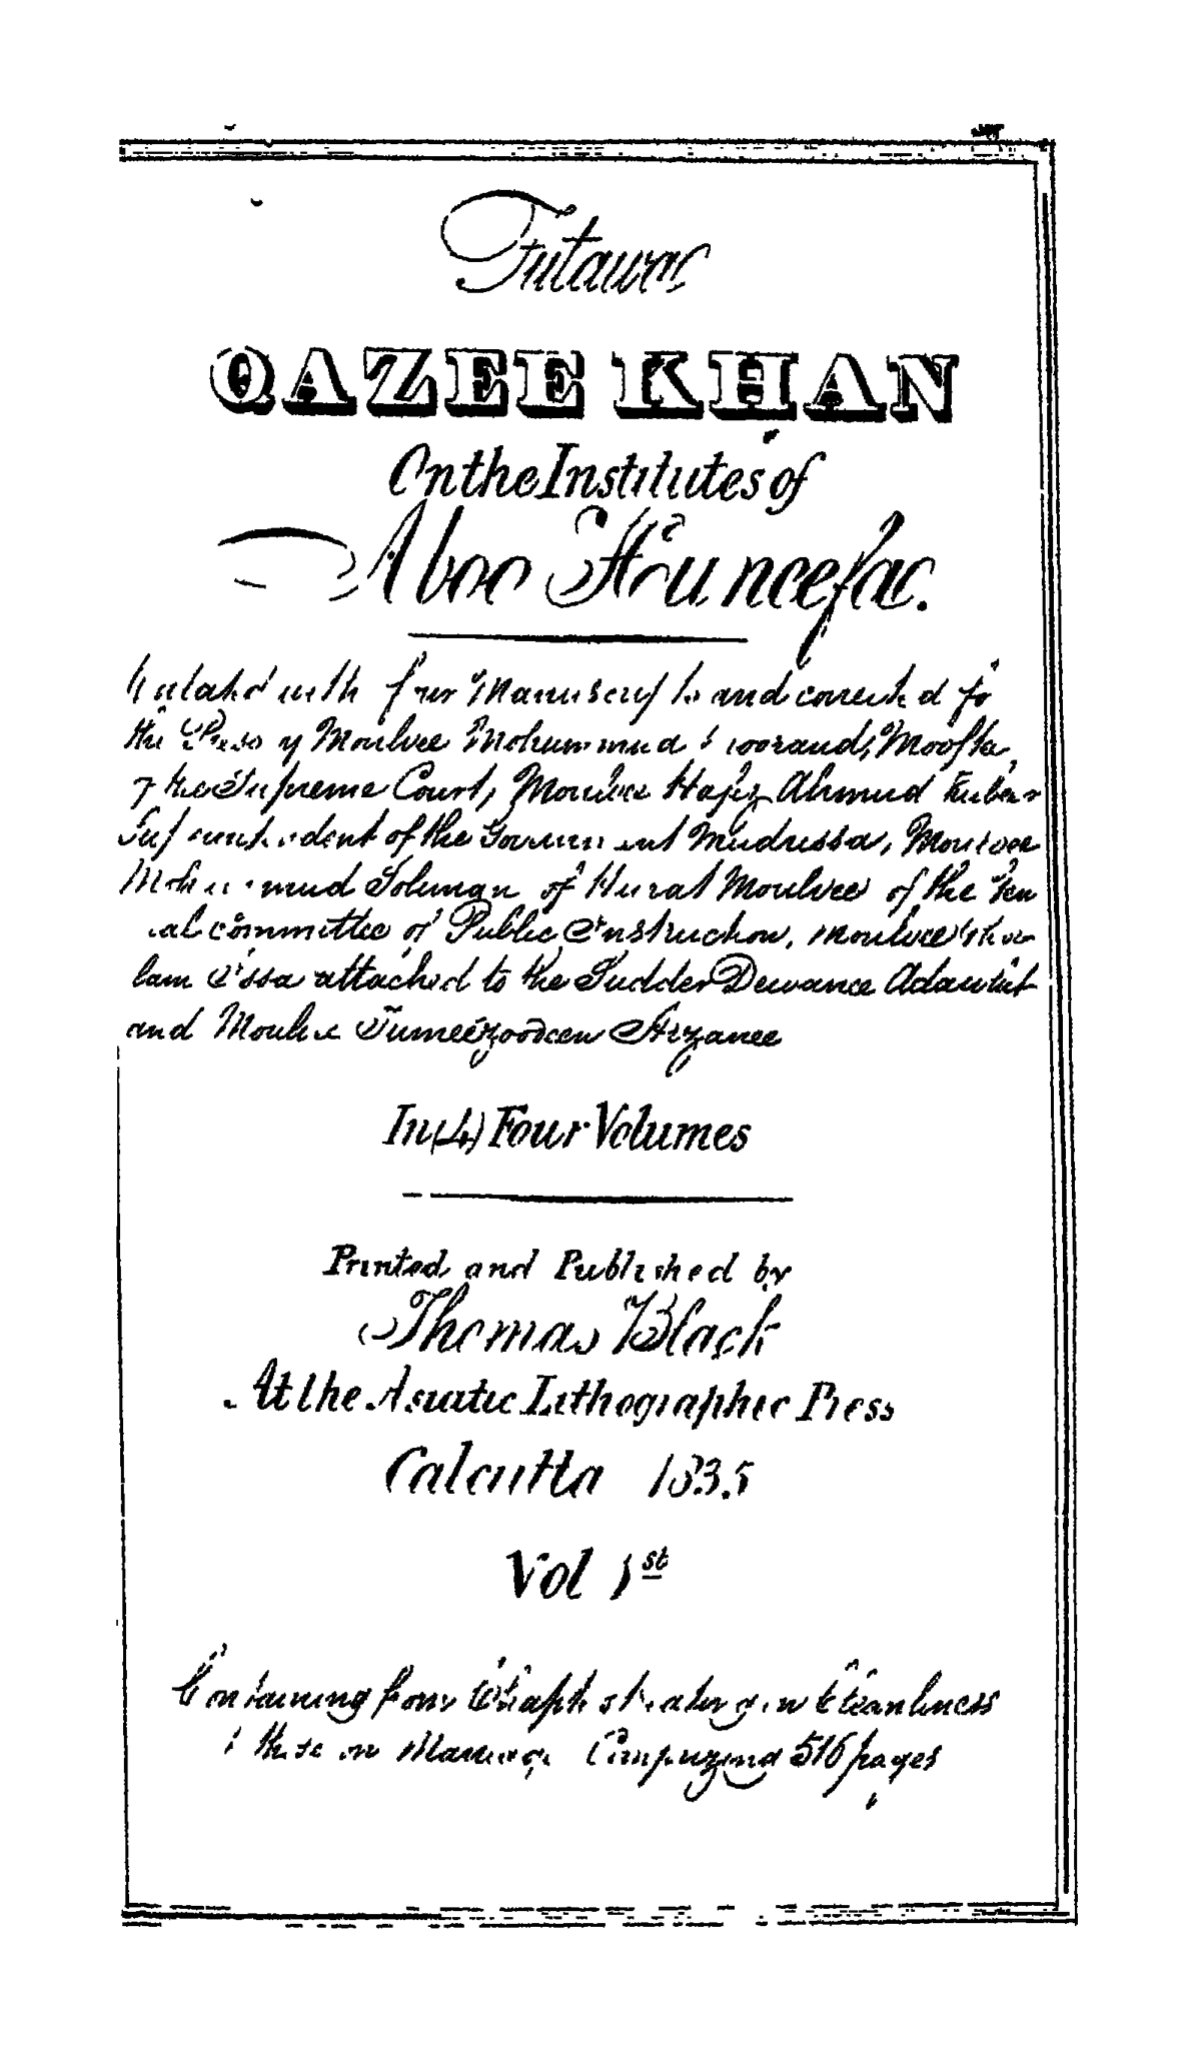 Futawa
QAZEE KHAN
On the Institutes of
Aboo Huneefac.
with four Manuscripts and corrected for
the Press by Moulvee Mohummud Mooftee
of the Supreme Court, Moulvee Hafiz Ahmud Kubeer
Superintendent of the Government Mudrussa, Moulvee
Mohummud Soliman of Hurat Moulvee of the Gen
-al committee of Public Instruction, Moulvee
lam Eissa attached to the Sudder Dewanee Adawlut
and Moulvee Tumeezooddeen Arzanee
In (4) Four Volumes
Printed and Published by
Thomas Black
At the Asiatic Lithographic Press
Calcutta 1835
Vol 1st
Containing four Chapters treating on Cleanliness
these on Marriage Comprizing 516 pages